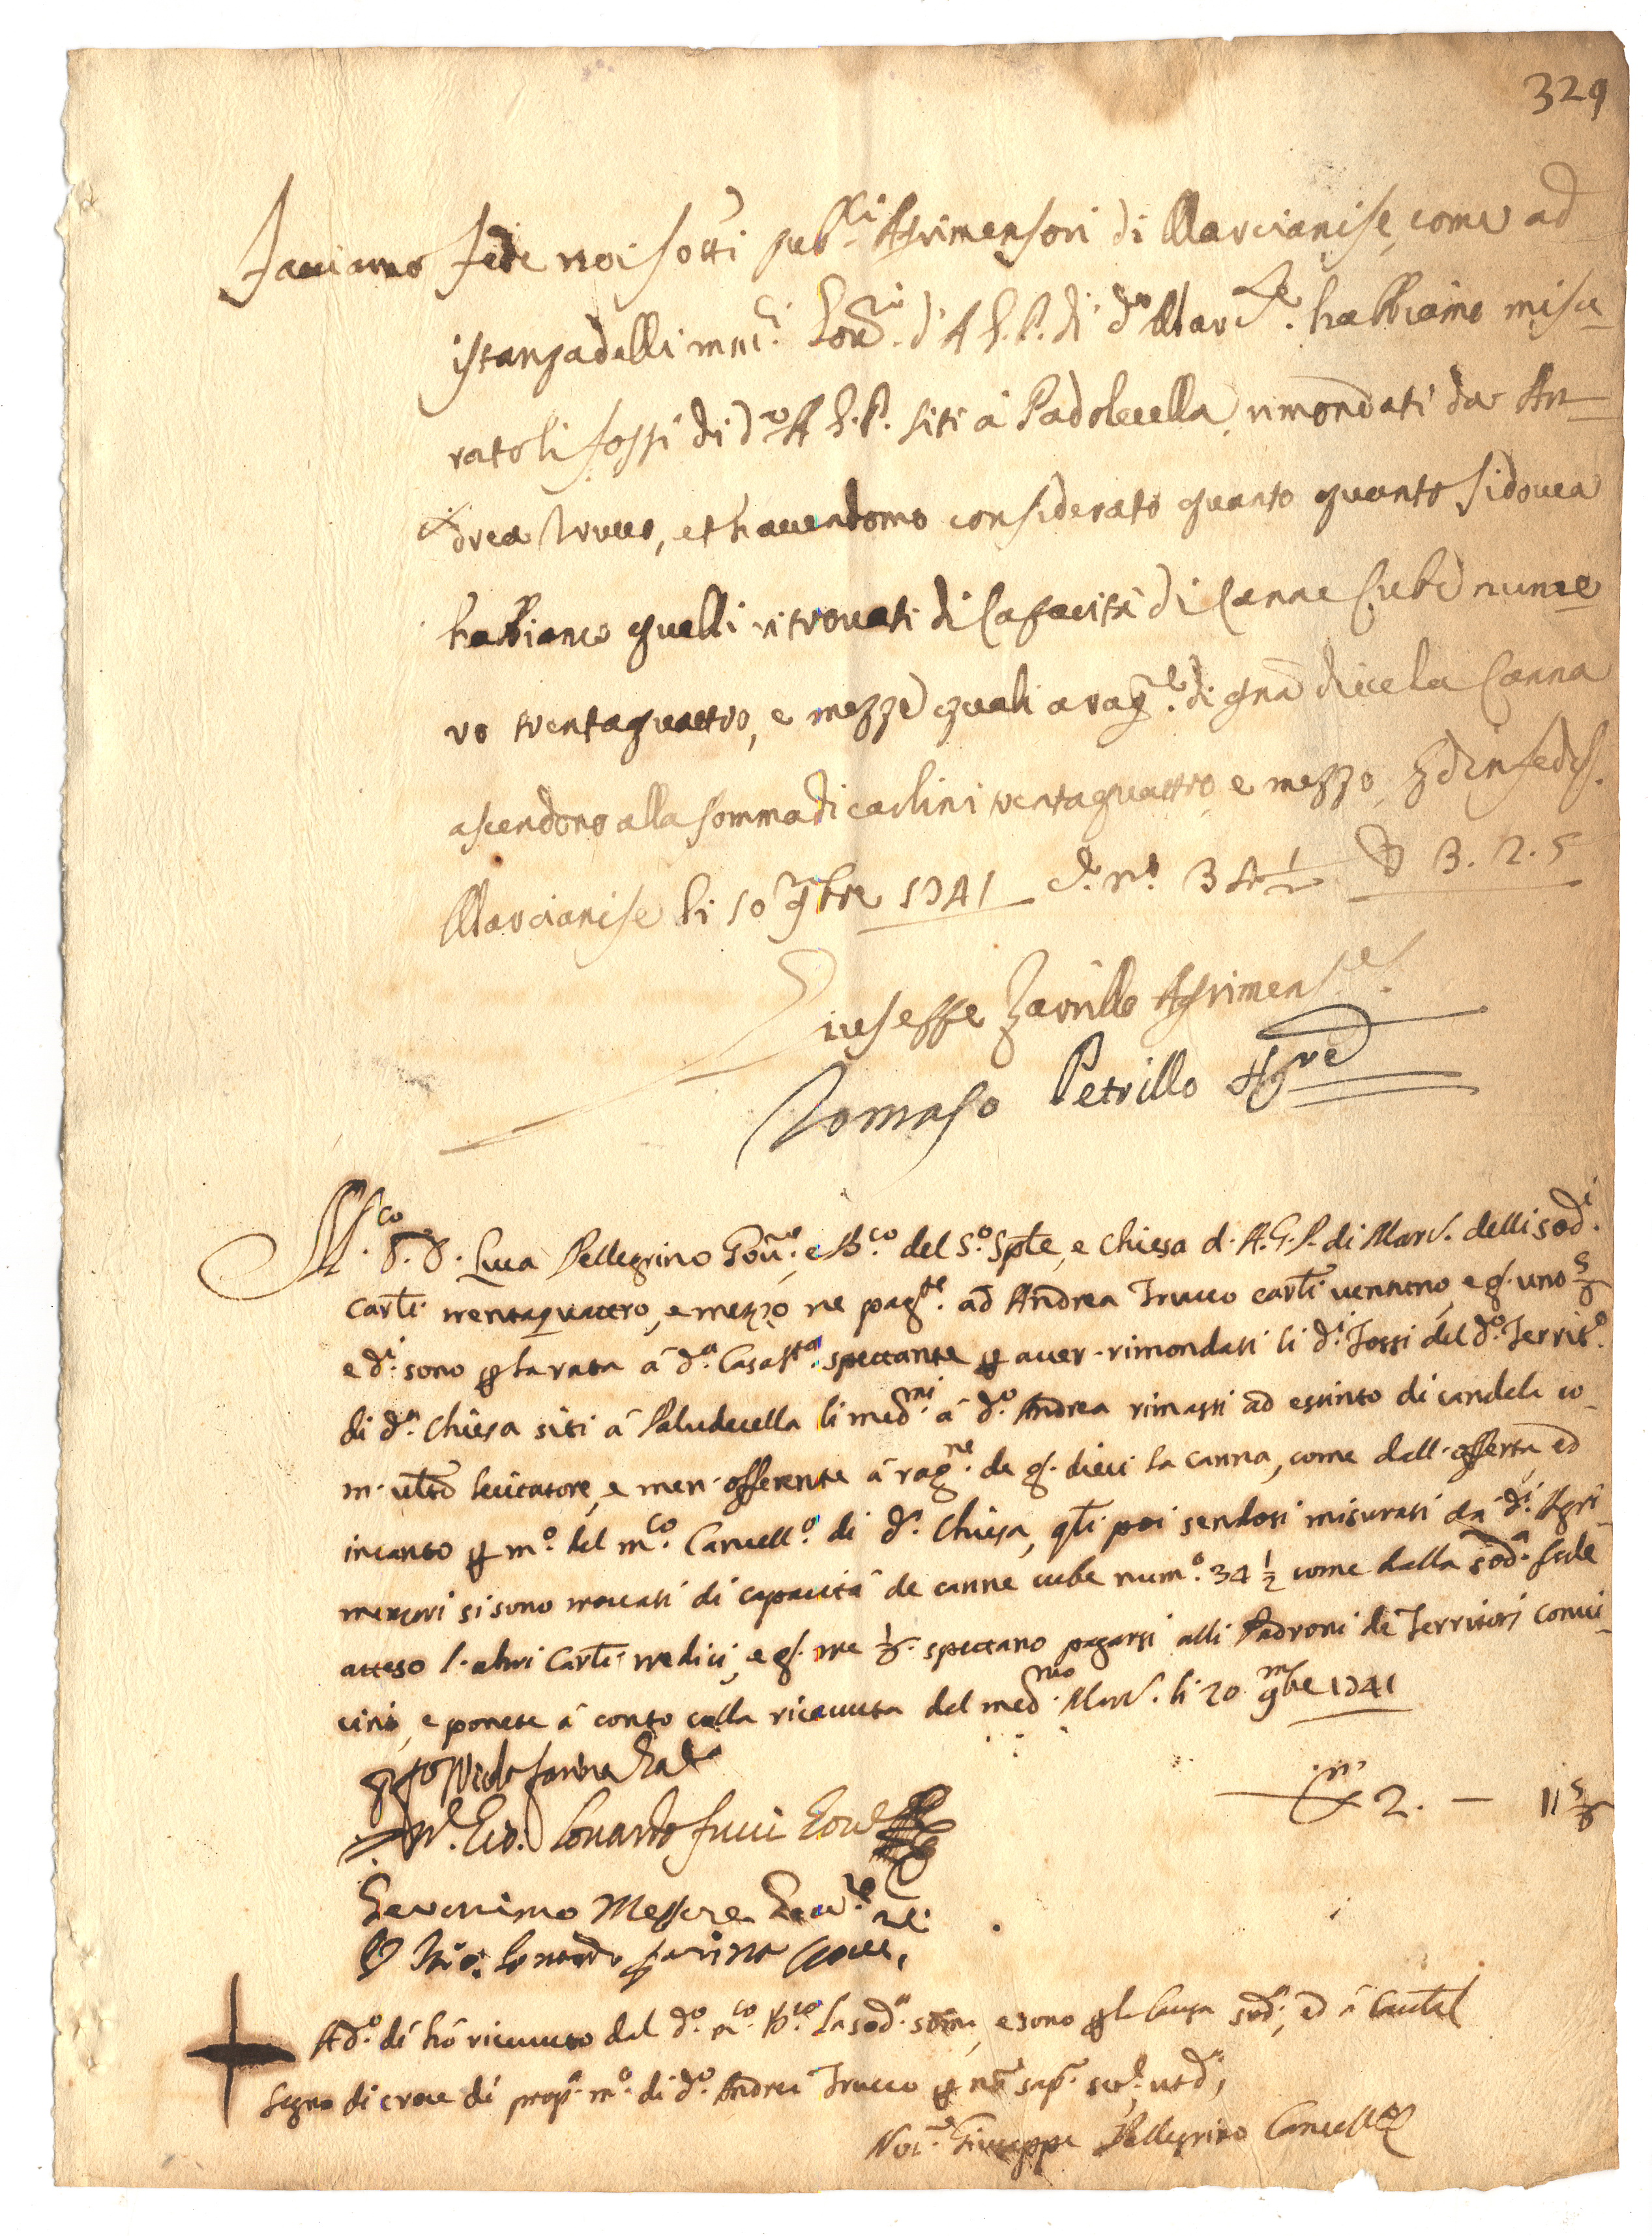 329
Facciamo fede noi sotti pubci Agrimensori di Marcianise, come ad
istanza delli mci Govri d'A. G. P. di do Marcse. habbiamo misu
rato li fossi di do A. G. P. siti à Padolecella, rimondati da An
drea Trucco, et havendomo considerato quanto quanto si dovea
habbiamo quelli ritrovati di Capacità di Canne Cube nume
ro trentaquattro, e mezze quali a ragne. di gna diece la Canna
ascendono alla somma di carlini trentaquattro, e mezzo, Ed in fede
Marcianise li 10 9bre 1741 C. no. 34 1/2 D 3. 2. 5
Giuseppe Zarrillo Agrimense.
Tomaso Petrillo Agre
Mco. S. D. Luca Pellegrino Gove. e Bco. del So. Sple, e Chiesa d. A. G. P. di Marc. delli sodi.
Carli. trentaquattro, e mezzo ne pagte. ad Andrea Trucco carli ventuno, e g. uno 5/6
e di. sono p la rata à da. Casa Sta. spettante p aver rimondati li di. Fossi del do. Territo.
di da. Chiesa siti à Paludecella li medmi. à do. Andrea rimasti ad estinto di candela co
m. ulto licitatore, e men offerente à ragne. de g. dieci la canna, come dall. offerta, ed
incanto p mo. del mco. Cancello. di da. Chiesa, qli poi sendosi misurati da di. Agri
mensori si sono trovati di capacità de canne cube numo. 34 1/2 come dalla soda. fede
atteso l. altri Carli tredici, e g. tre 1/6. spettano pagarsi alli Padroni de Territorj convi
cini, e ponete à conto colla ricevuta del medmo. Marc. li 20 9mbre 1741
Nicola Farina
D 2. — 11 5/6
Lonardo Fucci Gove
Geronimo Messore Gove.
Lonardo Farina Gove.
Ado. dí hò ricevuto dal do. mco. Bco. la soda. soma, e sono p la causa soda., ed à Cautel
Segno di croce di propa. mo. di do. Andrea Trucco p no sape. scre. utd,
Notr. Giuseppe Pellegrino Cancello